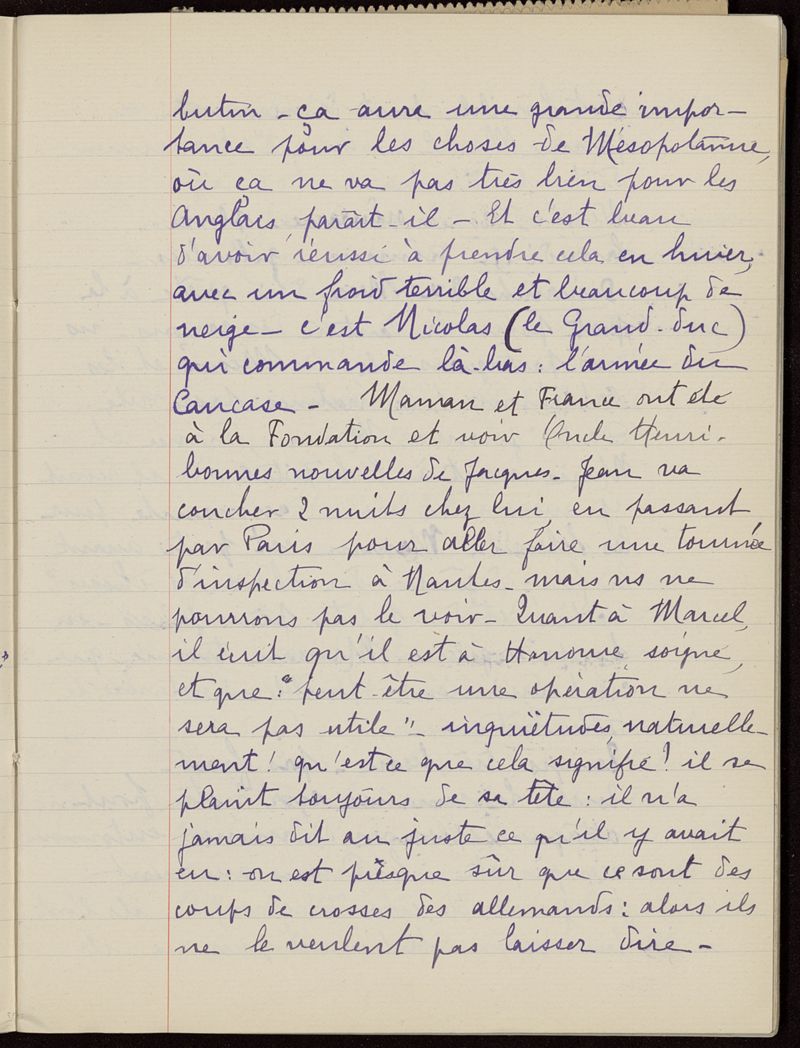 butin - ça aura une grande impor-
tance pour les choses de Mésopotamie,
où ça ne va pas très bien pour les
Anglais, paraît-il - Et c'est beau
d'avoir réussi à prendre cela en hiver,
avec un froid terrible et beaucoup de
neige - c'est Nicolas (le Grand-duc)
qui commande là-bas : l'armée du
Caucase - Maman et France ont été
à la Fondation et voir Oncle Henri.
bonnes nouvelles de Jacques - Jean va
coucher 2 nuits chez lui en passant
par Paris pour aller faire une tournée
d'inspection à Nantes - mais ns ne
pourrons pas le voir - Quant à Marcel,
il écrit qu'il est à Hanovre, soigné,
et que : "peut-être une opération ne
sera pas utile" - inquiétudes, naturelle-
ment ! qu'est ce que cela signifie ! il se
plaint toujours de sa tête : il n'a
jamais dit au juste ce qu'il y avait
eu : on est presque sûr que ce sont des
coups de crosses des allemands : alors ils
ne le veulent pas laisser dire -